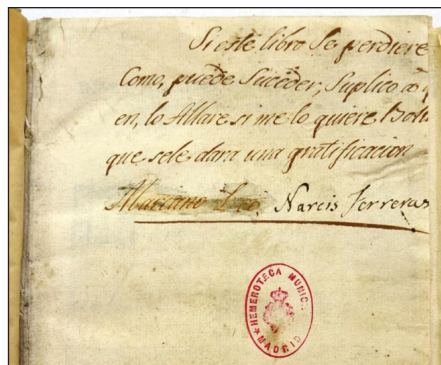 Si este libro Se perdiere
Como, puede Suceder, Suplico a
en, lo Allare si me lo quiere Bol
que sele dara una gratificacion
Mariano Narcis Ferreras
HEMEROTECA MUNICI
MADRID